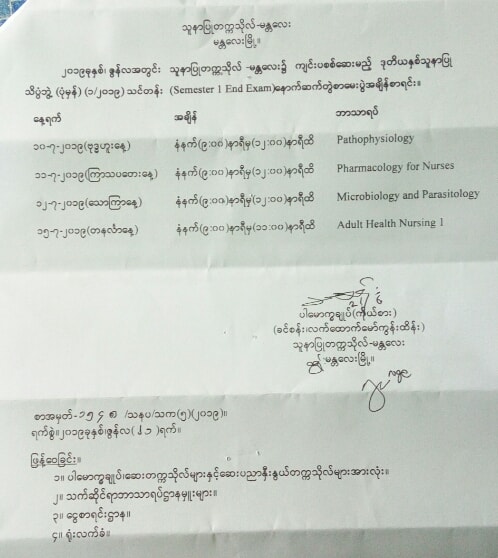 သူနာပြုတက္ကသိုလ်-မန္တလေး
မန္တလေးမြို့။
၂၀၁၉ခုနှစ်၊ ဇွန်လအတွင်း သူနာပြုတက္ကသိုလ် -မန္တလေး၌ ကျင်းပစစ်ဆေးမည့် ဒုတိယနှစ်သူနာပြု
သိပ္ပံဘွဲ့ (ပုံမှန်) (၁/၂၀၁၉) သင်တန်း (Semester 1 End Exam)နောက်ဆက်တွဲစာမေးပွဲအချိန်စာရင်း။
နေ့ရက် အချိန် ဘာသာရပ်
၁၀-၇-၂၀၁၉(ဗုဒ္ဓဟူးနေ့) နံနက်(၉:၀၀)နာရီမှ(၁၂:၀၀)နာရီထိ Pathophysiology
၁၁-၇-၂၀၁၉(ကြာသပတေးနေ့) နံနက်(၉:၀၀)နာရီမှ(၁၂:၀၀)နာရီထိ Pharmacology for Nurses
၁၂-၇-၂၀၁၉(သောကြာနေ့) နံနက်(၉:၀၀)နာရီမှ(၁၂:၀၀)နာရီထိ Microbiology and Parasitology
၁၅-၇-၂၀၁၉(တနင်္လာနေ့) နံနက်(၉:၀၀)နာရီမှ(၁၁:၀၀)နာရီထိ Adult Health Nursing 1
ပါမောက္ခချုပ်(ကိုယ်စား)
(ခင်စန်း၊လက်ထောက်မော်ကွန်းထိန်း)
သူနာပြုတက္ကသိုလ်-မန္တလေး
မန္တလေးမြို့။
စာအမှတ်-၁၅၄၈ /သနပ/သက(၅)(၂၀၁၉)။
ရက်စွဲ။၂၀၁၉ခုနှစ်၊ဇွန်လ(၂၁)ရက်။
ဖြန့်ဝေခြင်း။
၁။ ပါမောက္ခချုပ်၊ဆေးတက္ကသိုလ်များနှင့်ဆေးပညာနှီးနွှယ်တက္ကသိုလ်များအားလုံး။
၂။ သက်ဆိုင်ရာဘာသာရပ်ဌာနမှူးများ။
၃။ ငွေစာရင်းဌာန။
၄။ ရုံးလက်ခံ။